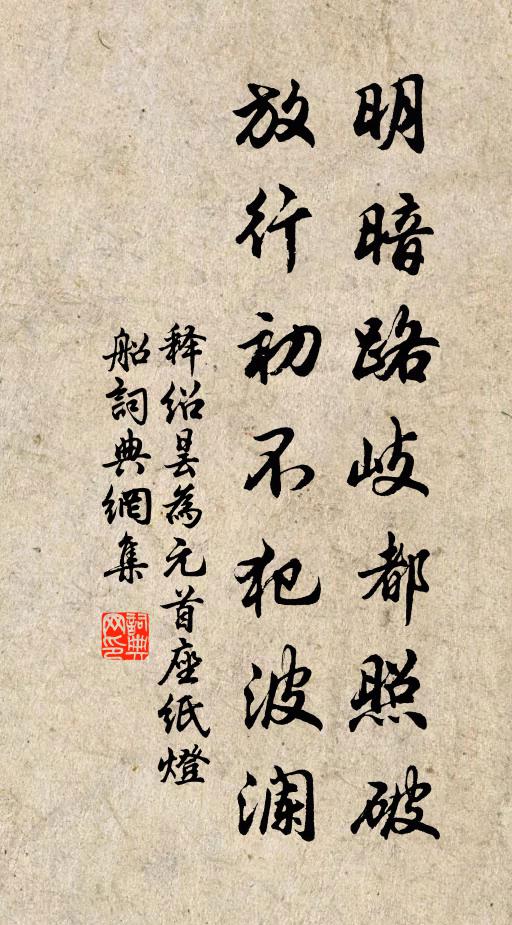 明暗路岐都照破
放行初不犯波澜
释绍昙為元首座纸燈
船詞典網集
詞典
网印